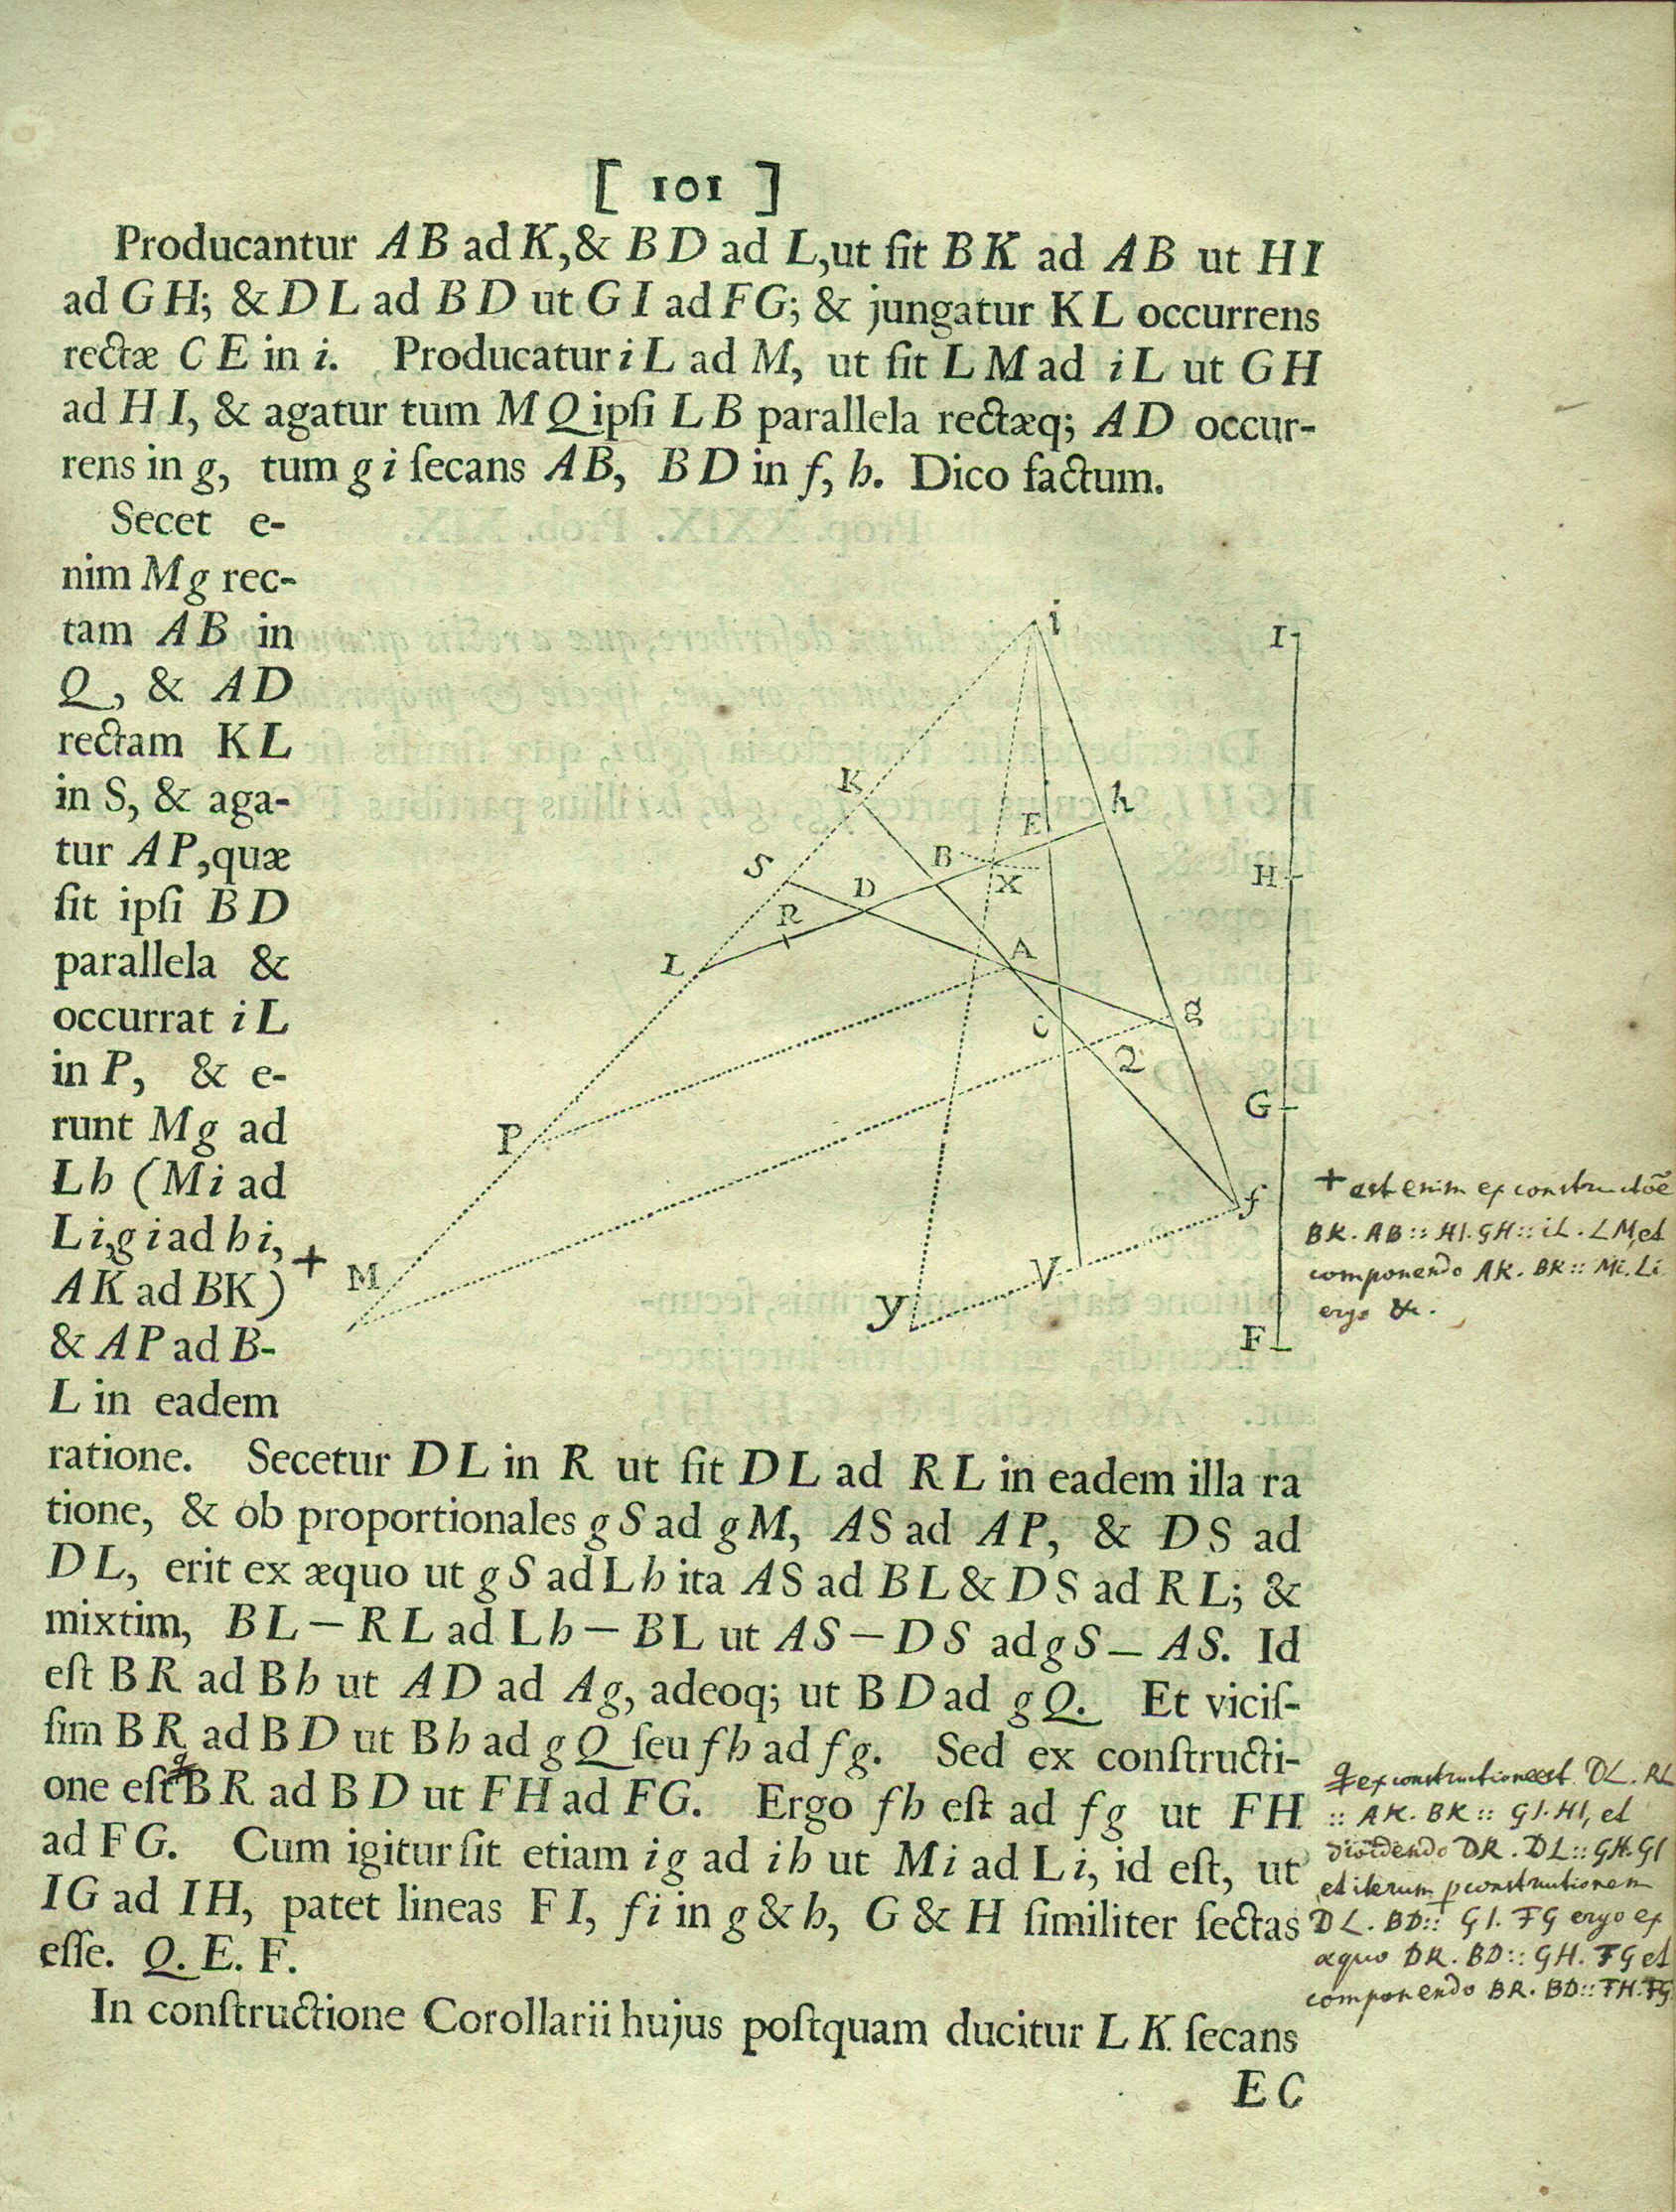 [ 101 ]
Producantur AB ad K,& BD ad L,ut ſit BK ad AB ut HI
ad GH; & DL ad BD ut GI ad FG; & jungatur KL occurrens
rectæ CE in i. Producatur iL ad M, ut ſit LM ad iL ut GH
ad HI, & agatur tum MQ ipſi LB parallela rectæq; AD occur-
rens in g, tum gi ſecans AB, BD in f, h. Dico factum.
Secet e-
nim Mg rec-
tam AB in
Q, & AD
rectam KL
in S, & aga-
tur AP,quæ
ſit ipſi BD
parallela &
occurrat iL
in P, & e-
runt Mg ad
Lh (Mi ad
Li,gi ad hi,
AK ad BK) +
& AP ad B-
L in eadem
i
I
K
h
E
S
B
H
D
X
R
L
A
g
C
Q
G
P
f
M
V
y
F
+ est enim ex constructõe
BK. AB :: HI. GH :: iL. LM, et
componendo AK. BK :: Mi. Li
ergo &c.
ratione. Secetur DL in R ut ſit DL ad RL in eadem illa ra
tione, & ob proportionales gS ad gM, AS ad AP, & DS ad
DL, erit ex æquo ut gS ad Lh ita AS ad BL & DS ad RL; &
mixtim, BL — RL ad Lh — BL ut AS — DS ad gS — AS. Id
eſt BR ad Bh ut AD ad Ag, adeoq; ut BD ad gQ. Et viciſ-
ſim BR ad BD ut Bh ad gQ ſeu fh ad fg. Sed ex conſtructi-
one eſt BR ad BD ut FH ad FG. Ergo fh eſt ad fg ut FH
ad FG. Cum igitur ſit etiam ig ad ih ut Mi ad Li, id eſt, ut
IG ad IH, patet lineas FI, fi in g & h, G & H ſimiliter ſectas
eſſe. Q. E. F.
In conſtructione Corollarii hujus poſtquam ducitur LK ſecans
EC
ex constructione est DL. RL
:: AK. BK :: GI. HI, et
dividendo DR. DL :: GH. GI
et iterum p constructionem
DL. BD :: GI. FG ergo ex
æquo DR. BD :: GH. FG et
componendo BR. BD :: FH. FG